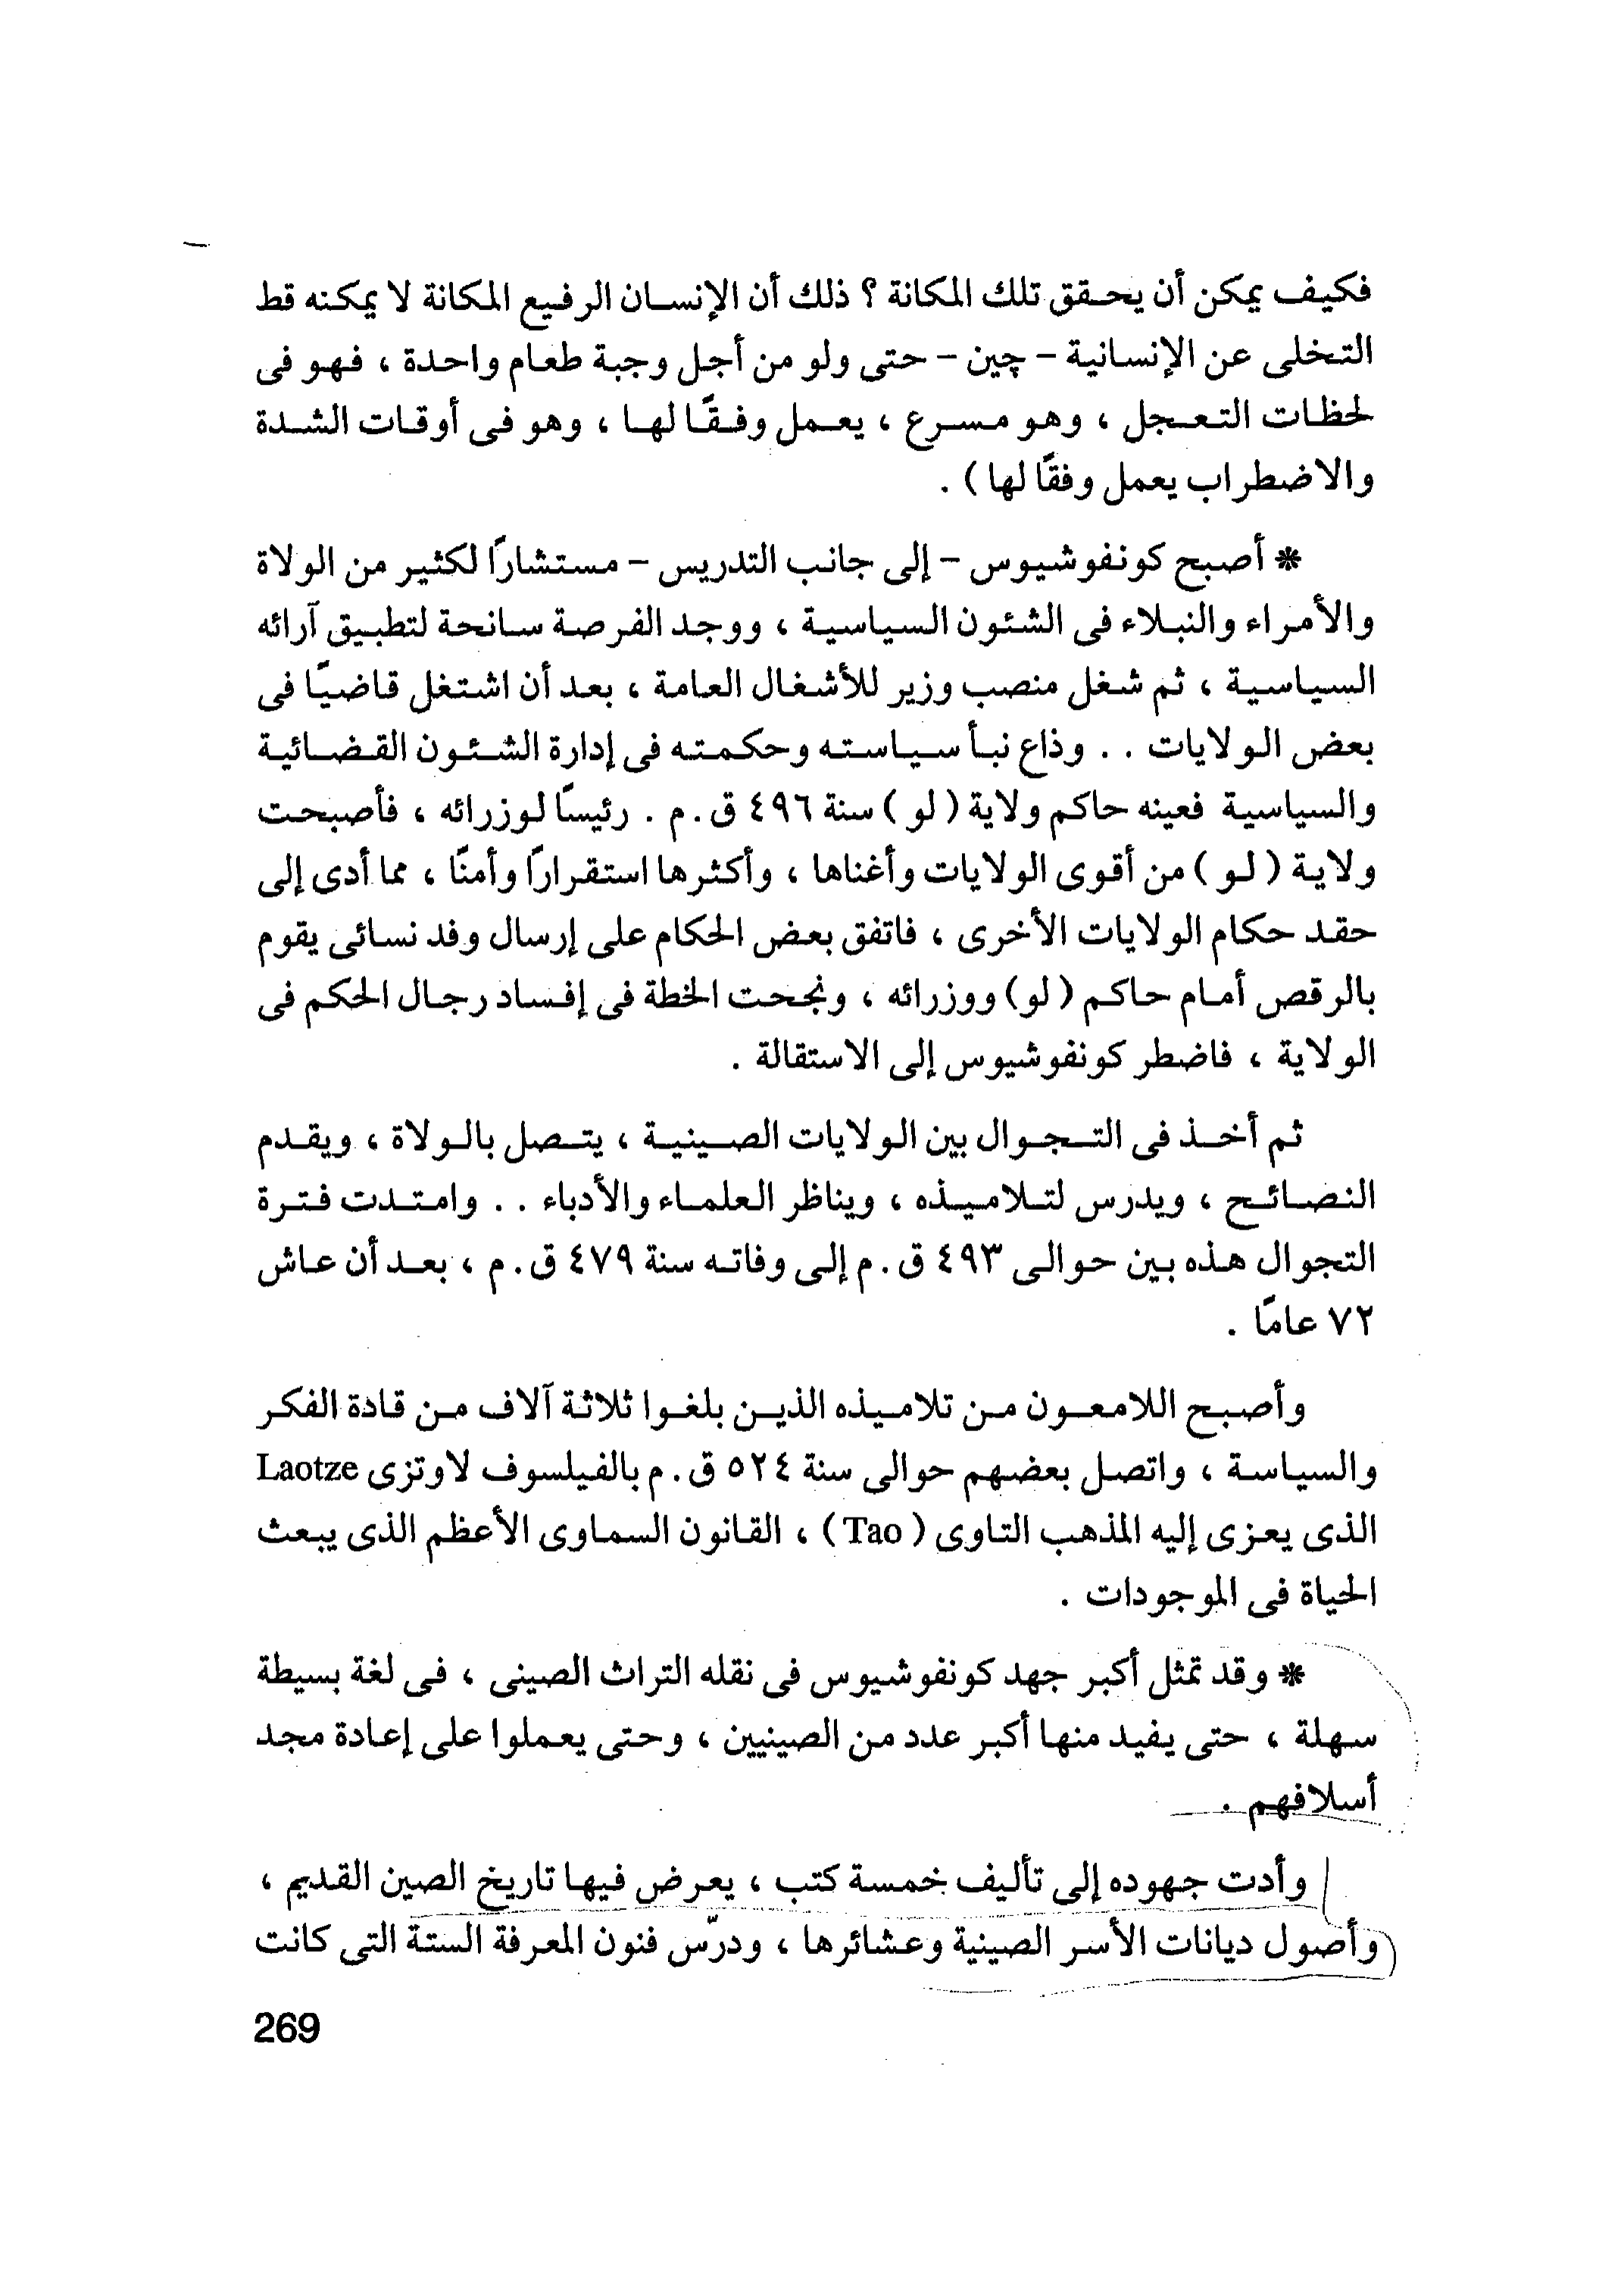 فكيف يمكن أن يحقق تلك المكانة ؟ ذلك أن الإنسان الرفيع المكانة لا يمكنه قط
التخلى عن الإنسانية - چين - حتى ولو من أجل وجبة طعام واحدة ، فهو فى
لحظات التعجل ، وهو مسرع ، يعمل وفقًا لها ، وهو فى أوقات الشدة
والاضطراب يعمل وفقًا لها ) .
* أصبح كونفوشيوس - إلى جانب التدريس - مستشارًا لكثير من الولاة
والأمراء والنبلاء فى الشئون السياسية ، ووجد الفرصة سانحة لتطبيق آرائه
السياسية ، ثم شغل منصب وزير للأشغال العامة ، بعد أن اشتغل قاضيًا فى
بعض الولايات . . وذاع نبأ سياسته وحكمته فى إدارة الشئون القضائية
والسياسية فعينه حاكم ولاية ( لو ) سنة ٤٩٦ ق . م . رئيسًا لوزرائه ، فأصبحت
ولاية ( لو ) من أقوى الولايات وأغناها ، وأكثرها استقرارًا وأمنًا ، مما أدى إلى
حقد حكام الولايات الأخرى ، فاتفق بعض الحكام على إرسال وفد نسائى يقوم
بالرقص أمام حاكم ( لو ) ووزرائه ، ونجحت الخطة فى إفساد رجال الحكم فى
الولاية ، فاضطر كونفوشيوس إلى الاستقالة .
ثم أخذ فى التجوال بين الولايات الصينية ، يتصل بالولاة ، ويقدم
النصائح ، ويدرس لتلاميذه ، ويناظر العلماء والأدباء . . وامتدت فترة
التجوال هذه بين حوالى ٤٩٣ ق . م إلى وفاته سنة ٤٧٩ ق . م ، بعد أن عاش
٧٢ عامًا .
وأصبح اللامعون من تلاميذه الذين بلغوا ثلاثة آلاف من قادة الفكر
والسياسة ، واتصل بعضهم حوالى سنة ٥٢٤ ق . م بالفيلسوف لاوتزى Laotze
الذى يعزى إليه المذهب التاوى ( Tao ) ، القانون السماوى الأعظم الذى يبعث
الحياة فى الموجودات .
* وقد تمثل أكبر جهد كونفوشيوس فى نقله التراث الصينى ، فى لغة بسيطة
سهلة ، حتى يفيد منها أكبر عدد من الصينيين ، وحتى يعملوا على إعادة مجد
أسلافهم .
وأدت جهوده إلى تأليف خمسة كتب ، يعرض فيها تاريخ الصين القديم ،
وأصول ديانات الأسر الصينية وعشائرها ، ودرّس فنون المعرفة الستة التى كانت
269